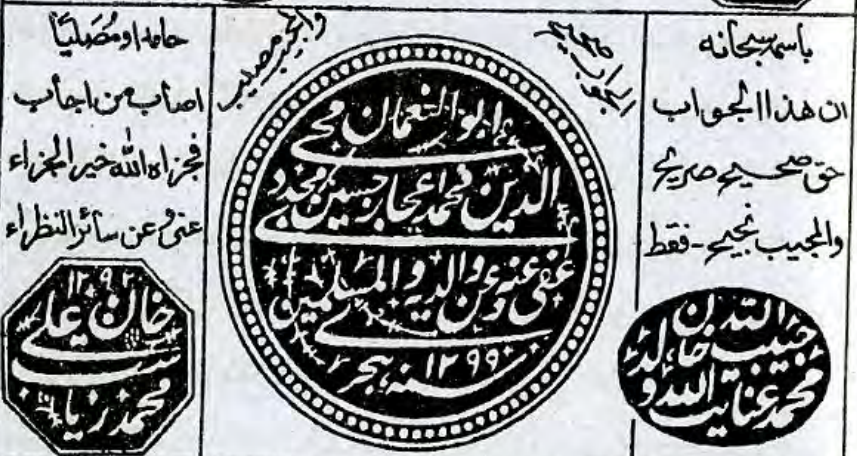 باسمہ سبحانه
ان هذا الجواب
حق صحيح صريح
والمجيب نجيح - فقط
محمد عنايت الله
الجواب صحيح
والمجيب مصيب
ابو النعمان محی
الدين محمد اعجاز حسين مجددی
عفی عنہ وعن والديہ والمسلمين
۱۲۹۹ سنہ ہجری
حامدا ومصليا
اصاب من اجاب
فجزاه الله خير الجزاء
عنی وعن سائر النظراء
۱۲۹۲
خان علی
محمد